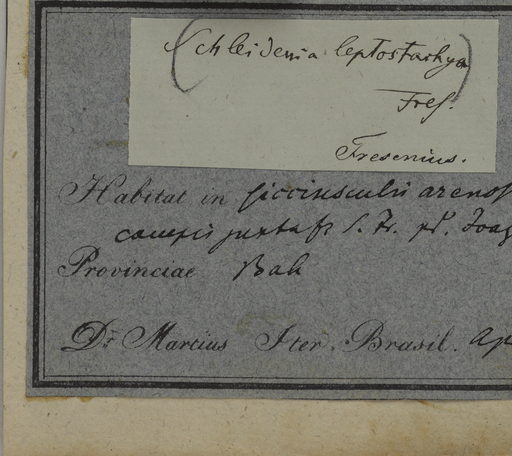 (Schleidenia leptostachya)
Fres.
Fresenius.
Habitat in sicciusculis arenos
campis juxta fl. S. Fr. pr. Joaz
Provinciae Bah
Dr. Martius Iter Brasil. Ap